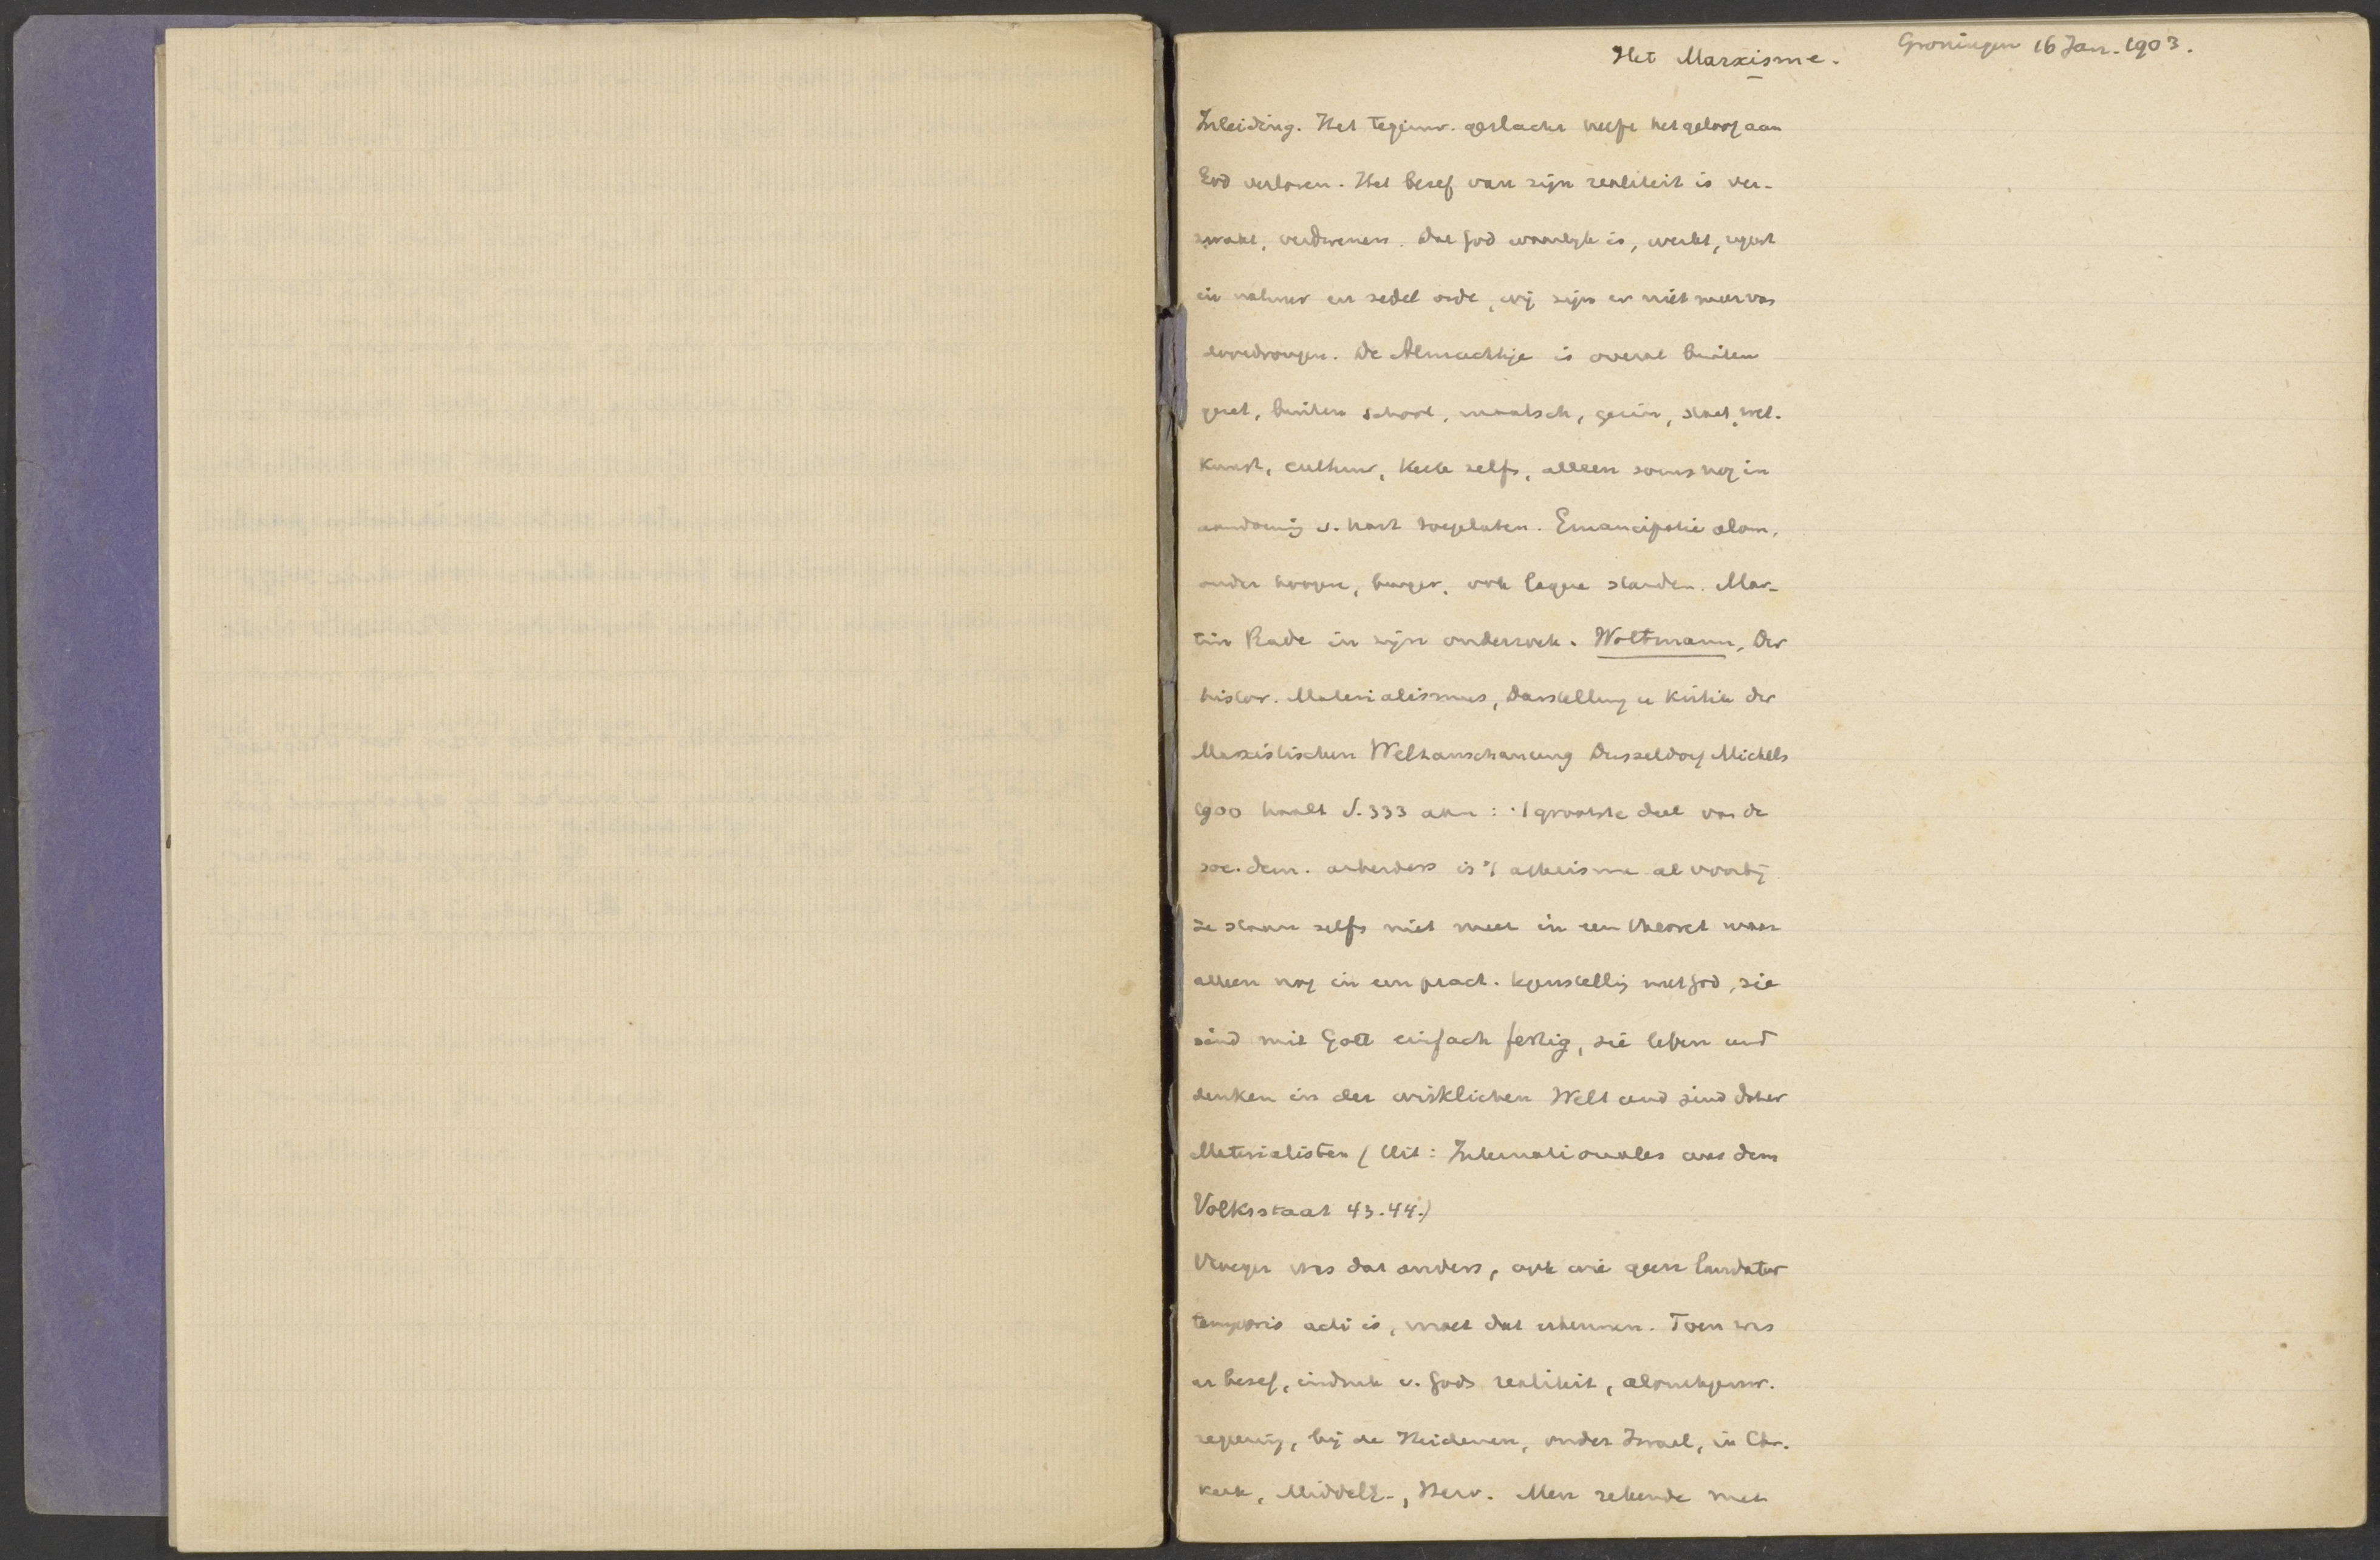 Het Marxisme.
Groningen 16 Jan. 1903.
Inleiding. Het tegenw. geslacht heeft het geloof aan
God verloren. Het besef van zijn realiteit is ver-
zwakt, verdwenen. Dat God waarlijk is, werkt, regeert
in natuur en zedel orde, wij zijn er niet meer van
doordrongen. De Almachtige is overal buiten
gezet, buiten school, maatsch, gezin, staat, wet.
Kunst, cultuur, Kerk zelfs, alleen soms nog in
aandoenig v. hart toegelaten. Emancipatie alom,
onder hoogere, burger, ook lagere standen. Mar-
tin Rade in zijn onderzoek. Woltmann, Der
histor. Materialismus, Darstellung u Kritik der
Marxistischen Weltanschauung Dusseldorf Michels
1900 haalt S. 333 aan: 't grootste deel van de
soc. dem. arbeiders is 't atheisme al voorbij
ze staan zelfs niet meer in een theoret maar
alleen nog in een pract. tegenstellig met God, sie
sind mit Gott einfach fertig, sie leben und
denken in der wirklichen Welt und sind daher
Materialisten (Uit: Internationales aus dem
Volksstaat 43.44.)
Vroeger was dat anders, ook wie geen laudator
temporis acti is, moet dat erkennen. Toen was
er besef, indruk v. Gods realiteit, alomtegenw.
regeering, bij de Heidenen, onder Israel, in Chr.
kerk, Middele-, Herv. Men rekende met